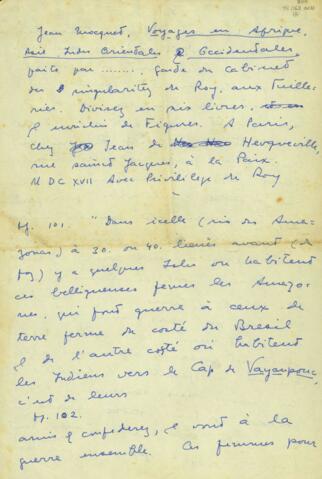 Jean Mocquet, Voyages en Afrique,
Asie, Indes Orientales & Occidentales
faits par ........ Garde du Cabinet
des singularitez du Roy, aux Tuille-
ries. Divisez en six livres,
& enrichis de Figures. A Paris,
chez Jean de Heuqueville,
rue saint Jacques, à la Paix.
M DC XVII Avec Privilege du Roy
-
pg. 101. "Dans icelle (rio des Ama-
zonas) à 30. ou 40. lieuës avant
y a quelques Isles ou habitent
ces belliqueuses femes les Amazo-
nes, qui font guerre à ceux de
terre ferme du costé du Bresil
& de l'autre costé où habitent
les Indiens vers le Cap de
c'est de leurs
pg. 102.
amis & confederez, & vont à la
guerre ensemble. Ces femmes pour